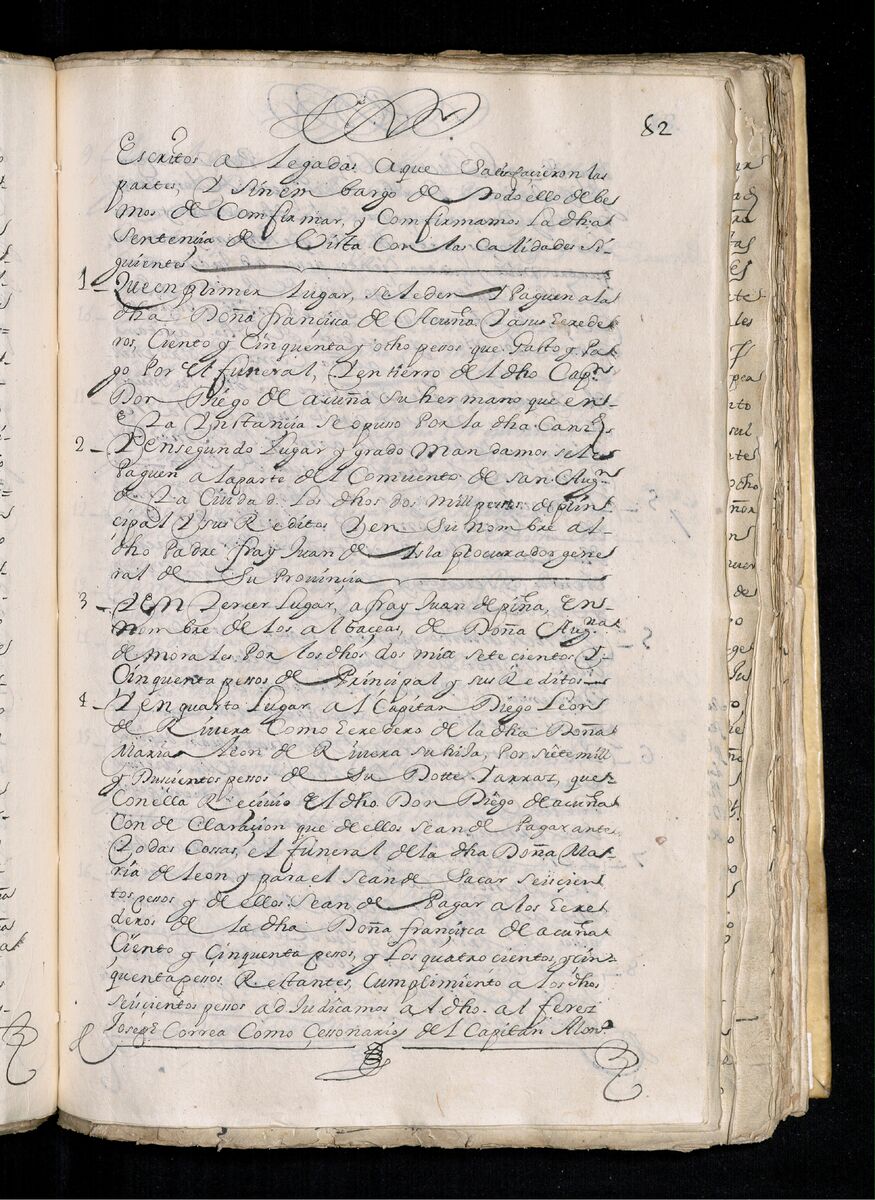 82
Escritos a legadas a que Satisfacieron las
partes, Y Sin em bargo de todo ello debe
mos de Comfirmar, y Comfirmamos La dha
Sentencia de Vista Con las Calidades Si-
guientes
1 - Que en primer Lugar, se le den Y Paguen a la
dha Doña francisca de Acuña Y a sus Erede
ros, Ciento y Cinquenta y otho pesos que Gasto y Pa
go Por el funeral, Y entierro del dho Cappn
Don Diego de acuña Su hermano que en es
ta Ynstancia se opuso Por la dha Cantd
2 - Y en segundo Lugar y grado Mandamos se le
Paguen a la parte del Comuento de San Augn
de esta Ciudad. Los dhos dos mill pessos de prin
cipal Y sus Reditos Y en Su nombre al
dho Padre fray Juan de Isla procurador gene
ral de Su Prouincia
3 - Y En Tercer Lugar, a fray Juan de piña, En
nombre de los albaceas, de Doña Augna
de Morales Por los dhos dos mill sete cientos Y
Cinquenta pessos de Principal y sus Reditos
4 - Y en quarto Lugar al Capitan Diego Leon
de Riuera Como Eredero de la dha Doña
Maria Leon de Riuera su hija, Por siete mill
y Duscientos pessos de Su Dotte Y arras, que
Con ella Reciuio el dho Don Diego de acuña
Con de Claracion que de ellos se an de Pagar ante
todas Cossas, el funeral de la dha Doña Ma
ria de leon y para el se an de Sacar seiscien
tos pessos y de ellos se an de Pagar a los Ere
deros de la dha Doña francisca de acuña
Ciento y Cinquenta pessos, y Los quatro cientos, y cin
quenta pessos Restantes, Cumplimiento a los dhos
seiscientos pessos adJudicamos al dho. alferez
Joseph Correa Como Cessonario del Capitan Alonso